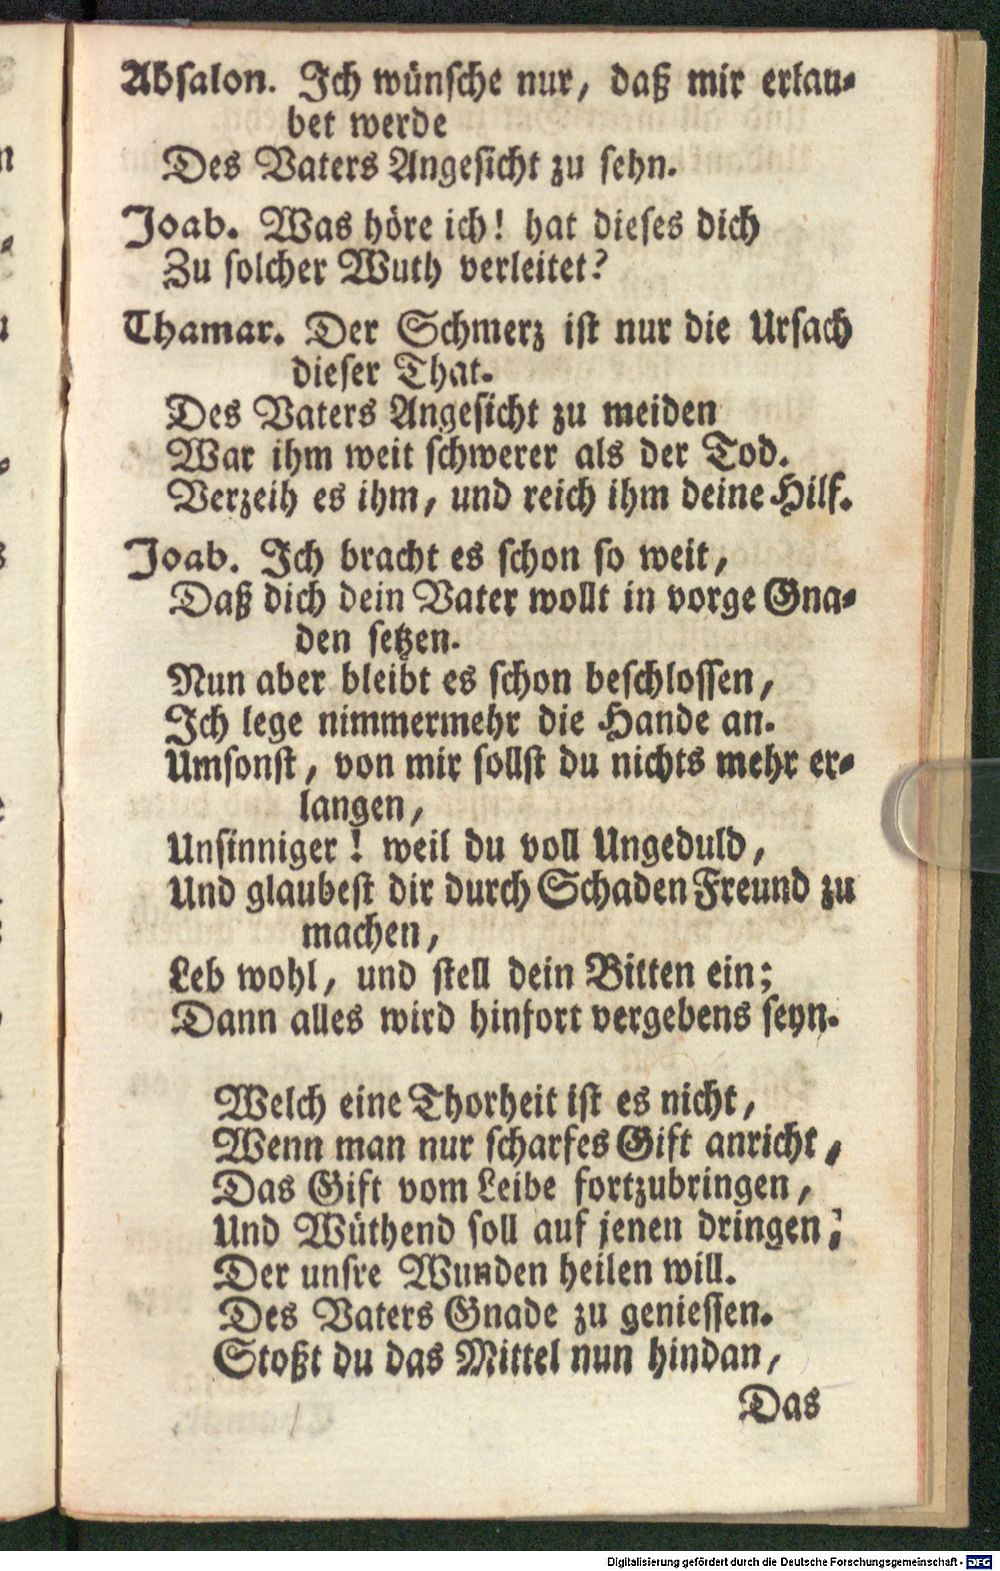 Absalon. Ich wünsche nur, daß mir erlau-
bet werde
Des Vaters Angesicht zu sehn.
Joab. Was höre ich! hat dieses dich
Zu solcher Wuth verleitet?
Thamar. Der Schmerz ist nur die Ursach
dieser That.
Des Vaters Angesicht zu meiden
War ihm weit schwerer als der Tod.
Verzeih es ihm, und reich ihm deine Hilf.
Joab. Ich bracht es schon so weit,
Daß dich dein Vater wollt in vorge Gna-
den setzen.
Nun aber bleibt es schon beschlossen,
Ich lege nimmermehr die Hande an.
Umsonst, von mir sollst du nichts mehr er-
langen,
Unsinniger! weil du voll Ungeduld,
Und glaubest dir durch Schaden Freund zu
machen,
Leb wohl, und stell dein Bitten ein;
Dann alles wird hinfort vergebens seyn.
Welch eine Thorheit ist es nicht,
Wenn man nur scharfes Gift anricht,
Das Gift vom Leibe fortzubringen,
Und Wüthend soll auf jenen dringen;
Der unsre Wunden heilen will.
Des Vaters Gnade zu geniessen.
Stoßt du das Mittel nun hindan,
Das
Digitalisierung gefördert durch die Deutsche Forschungsgemeinschaft - DFG